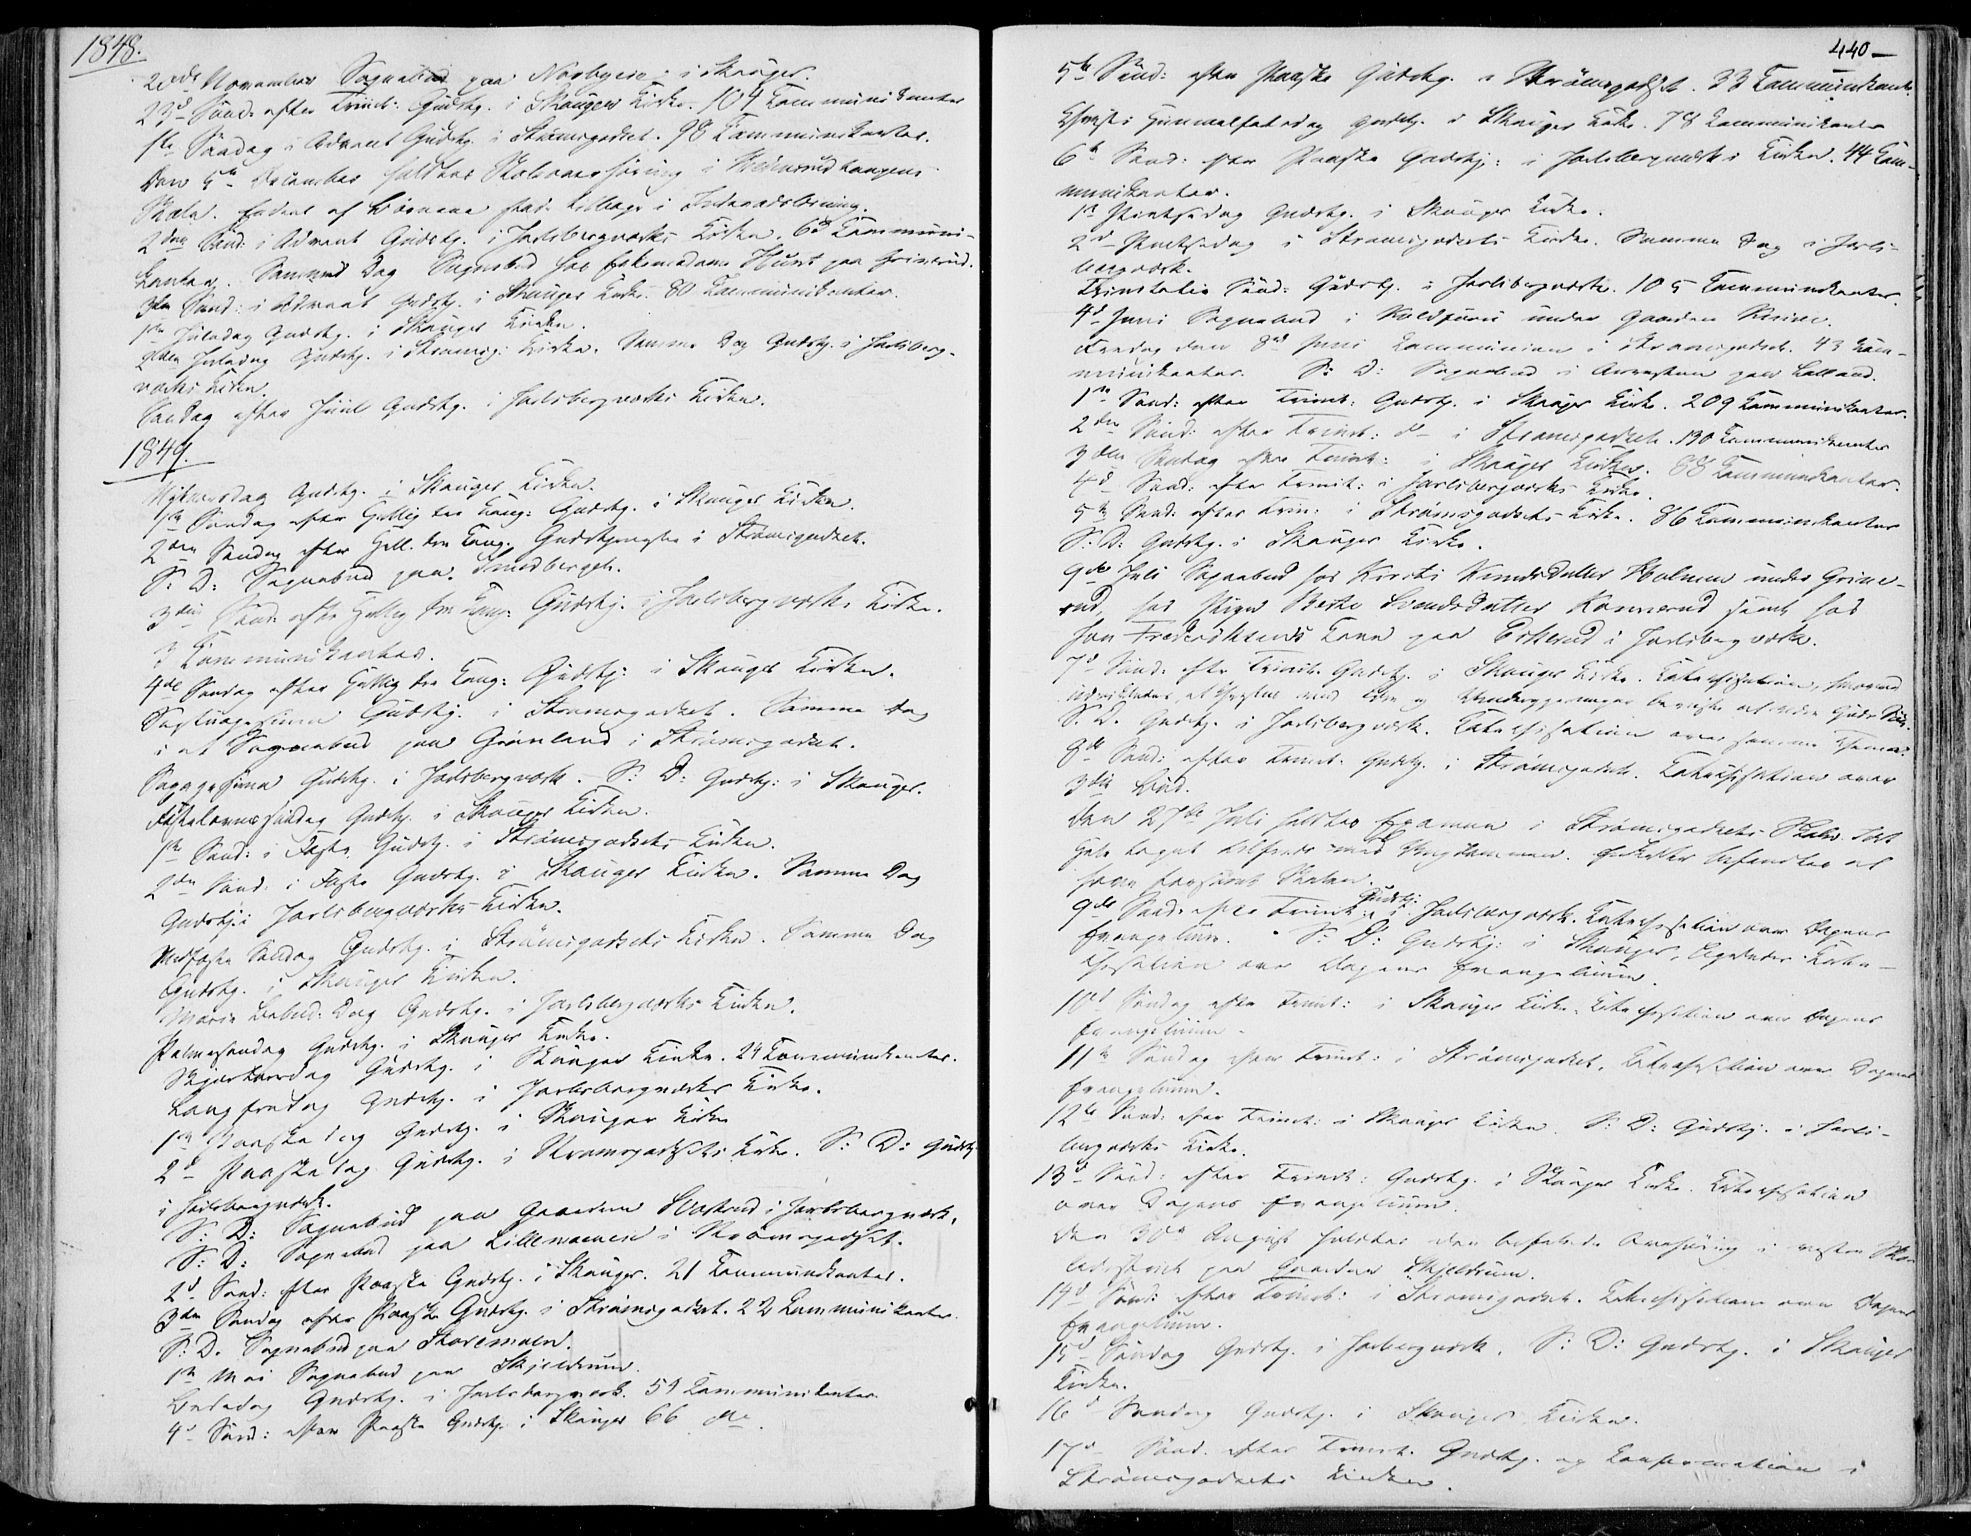 1848.
2den November Sognebud paa Norbyeie i Skouger.
23d Sønd: efter Trinit: Gudstj. i Skouger Kirke. 104 Communikanter
1ste Søndag i Advent Gudstj. i Strømsgodset. 98 Communikanter.
Den 5te December holdtes Skole
Skole. af Børnene tilbage i
2den Sønd: i Advent Gudstj. i Jarlsbergværks Kirke. Communi-
kanter. Samme Dag Sognebud hos paa
3die Sønd: i Advent Gudstj. i Skouger Kirke. 80 Communikanter.
1ste Juledag Gudstj. i Skouger Kirke.
2den Juledag Gudstj. i Strømsg: Kirke. Samme Dag Gudstj. i Jarlsberg-
værks Kirke.
Søndag efter Juul Gudstj. i Jarlsbergværks Kirke.
1849.
Nytaarsdag Gudstj. i Skouger Kirke.
1ste Søndag efter Hellig tre Kong: Gudstj. i Skouger Kirke.
2den Søndag efter Hell. tre Kong. Gudstjeneste i Strømsgodset.
S: D: Sognebud paa Smedberget.
3die Sønd: efter Hellig tre Kong: Gudstj. i Jarlsbergværks Kirke.
3 Communikanter.
4de Søndag efter Hellig tre Kong: Gudstj: i Skouger Kirke.
Septuagesima Gudstj. i Strømsgodset. Samme Dag
i et Sognebud paa Grønland i Strømsgodset.
Sexagesima Gudstj. i Jarlsbergværk. S: D: Gudstj: i Skouger.
Fastelavnssøndag Gudstj. i Skouger Kirke.
1ste Sønd: i Faste Gudstj. i Strømsgodsets Kirke.
2den Sønd: i Faste Gudstj. i Skouger Kirke. Samme Dag
Gudstj: i Jarlsbergværks Kirke.
Midfaste Søndag Gudstj. i Strømsgodsets Kirke. Samme Dag
Gudstj. i Skouger Kirke.
Mariæ Bebud: Dag Gudstj. i Jarlsbergværks Kirke.
Palmesøndag Gudstj. i Skouger Kirke.
Skjærtorsdag Gudstj. i Skouger Kirke. 24 Communikanter.
Langfredag Gudstj. i Jarlsbergværks Kirke.
1ste Paaskedag Gudstj. i Skouger Kirke
2d Paaskedag Gudstj. i Strømsgodsets Kirke. S: D: Gudstj
i Jarlsbergværk.
S: D: Sognebud paa Gaarden i Jarlsbergværk.
S: D: Sognebud paa Lillemoenen i Strømsgodset.
2d Sønd: efter Paaske Gudstj. i Skouger. 21 Communikanter.
3die Søndag efter Paaske Gudstj. i Strømsgodset. 22 Communikanter.
S: D. Sognebud paa Storemoen.
1ste Mai Sognebud paa Skjeldrum.
Bededag Gudstj. i Jarlsbergværk. 54 Communikanter
4d Sønd: efter Paaske Gudstj. i Skouger 66 do.
440
5te Sønd: efter Paaske Gudstj. i Strømsgodset. 33 Communikant:
Christi Himmelfartsdag Gudstj. i Skouger Kirke. 78 Communikanter
6te Sønd: efter Paaske Gudstj: i Jarlsbergværks Kirke. 44 Com-
munikanter.
1st Pintsedag Gudstj. i Skouger Kirke.
2d Pintsedag i Strømsgodsets Kirke. Samme Dag i Jarls-
bergværk.
Trinitatis Sønd: Gudstj. i Jarlsbergværk. 105 Communikanter.
4d Juni Sognebud i under Gaarden
Fredag den 8de Juni Communion i Strømsgodset. 43 Com-
munikanter. S: D: Sognebud i
1ste Sønd: efter Trinit: Gudstj. i Skouger Kirke. 209 Communikanter.
2den Sønd: efter Trinit: do i Strømsgodset. 130 Communikanter
3die Søndag efter Trinit: i Skouger Kirke. 88 Communikanter.
4d Sønd: efter Trinit: i Jarlsbergværks Kirke.
5te Sønd: efter Trin: i Strømsgodsets Kirke. 86 Communikanter
S: D: Gudstj. i Skouger Kirke.
9de Juli Sognebud hos Kirsti Knudsdatter Holmen under Grine-
rud, hos Pigen Berte Svendsdatter Konnerud samt hos
Jon Frederiksens Kone paa Eskerud i Jarlsbergværk.
7d Sønd: efter Trinit: Gudstj. i Skouger Kirke. Katechisation,
S. D. Gudstj. i Jarlsbergværk. Katechisation over samme Thema.
8de Sønd: efter Trinit. Gudstj. i Strømsgodset. Katechisation over
3die Bud.
Den 27de Juli holdtes Examen i Strømsgodsets Skole.

9de Sønd: efter Trinit: Gudstj: i Jarlsbergværk. Katechisation over Dagens
Evangelium. S: D: Gudstj: i Skouger, Kate-
chisation over Dagens Evangelium.
10d Søndag efter Trinit: i Skouger Kirke. Katechisation over Dagens
Evangelium.
11te Søndag efter Trinit: i Strømsgodset. Katechisation over Dagens
Evangelium.
12te Sønd: efter Trinit: i Skouger Kirke. S: D: Gudstj. i Jarls-
bergværks Kirke.
13d Sønd: efter Trinit: Gudstj. i Skouger Kirke. Katechisation
over Dagens Evangelium.
Den 30te August holdtes den befalede i vestre Sko-
paa Gaarden Skjeldrum.
14d Sønd: efter Trinit: i Strømsgodset. Katechisation over Dagens
Evangelium.
15d Søndag Gudstj. i Jarlsbergværk. S: D: Gudstj. i Skouger
Kirke.
16d Søndag Gudstj. i Skouger Kirke.
17d Sønd. efter Trinit. Gudstj. og Confirmation i
Strømsgodsets Kirke.